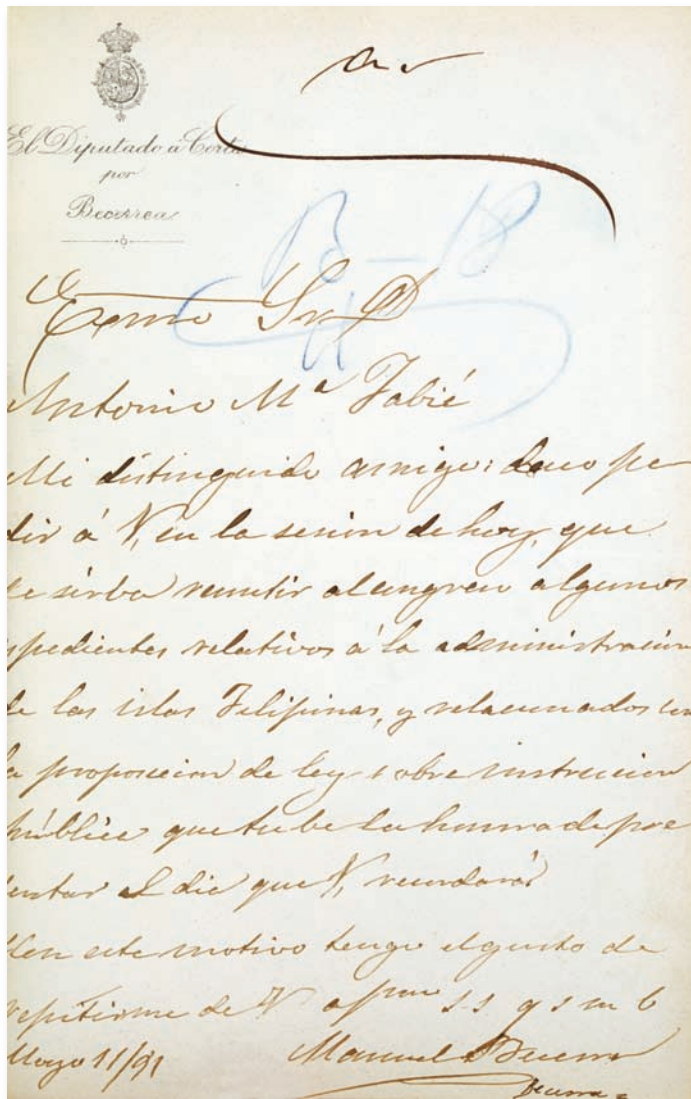 El Diputado á Cortes
por
Becerreá
B-18
Exmo Sr. D.
Antonio Mª Fabié
Mi distinguido amigo: deseo pe
dir á V, en la sesion de hoy, que
se sirba remitir al congreso algunos
spedientes relativos á la administracion
de las islas Filipinas, y relacionados con
la proposicion de ley sobre instruccion
pública que tube la honra de pre
sentar el dia que V, recordará
Con este motivo tengo el gusto de
repetirme de V afmo s.s. q s m b
Mayo 11/91 Manuel Becerra
Becerra